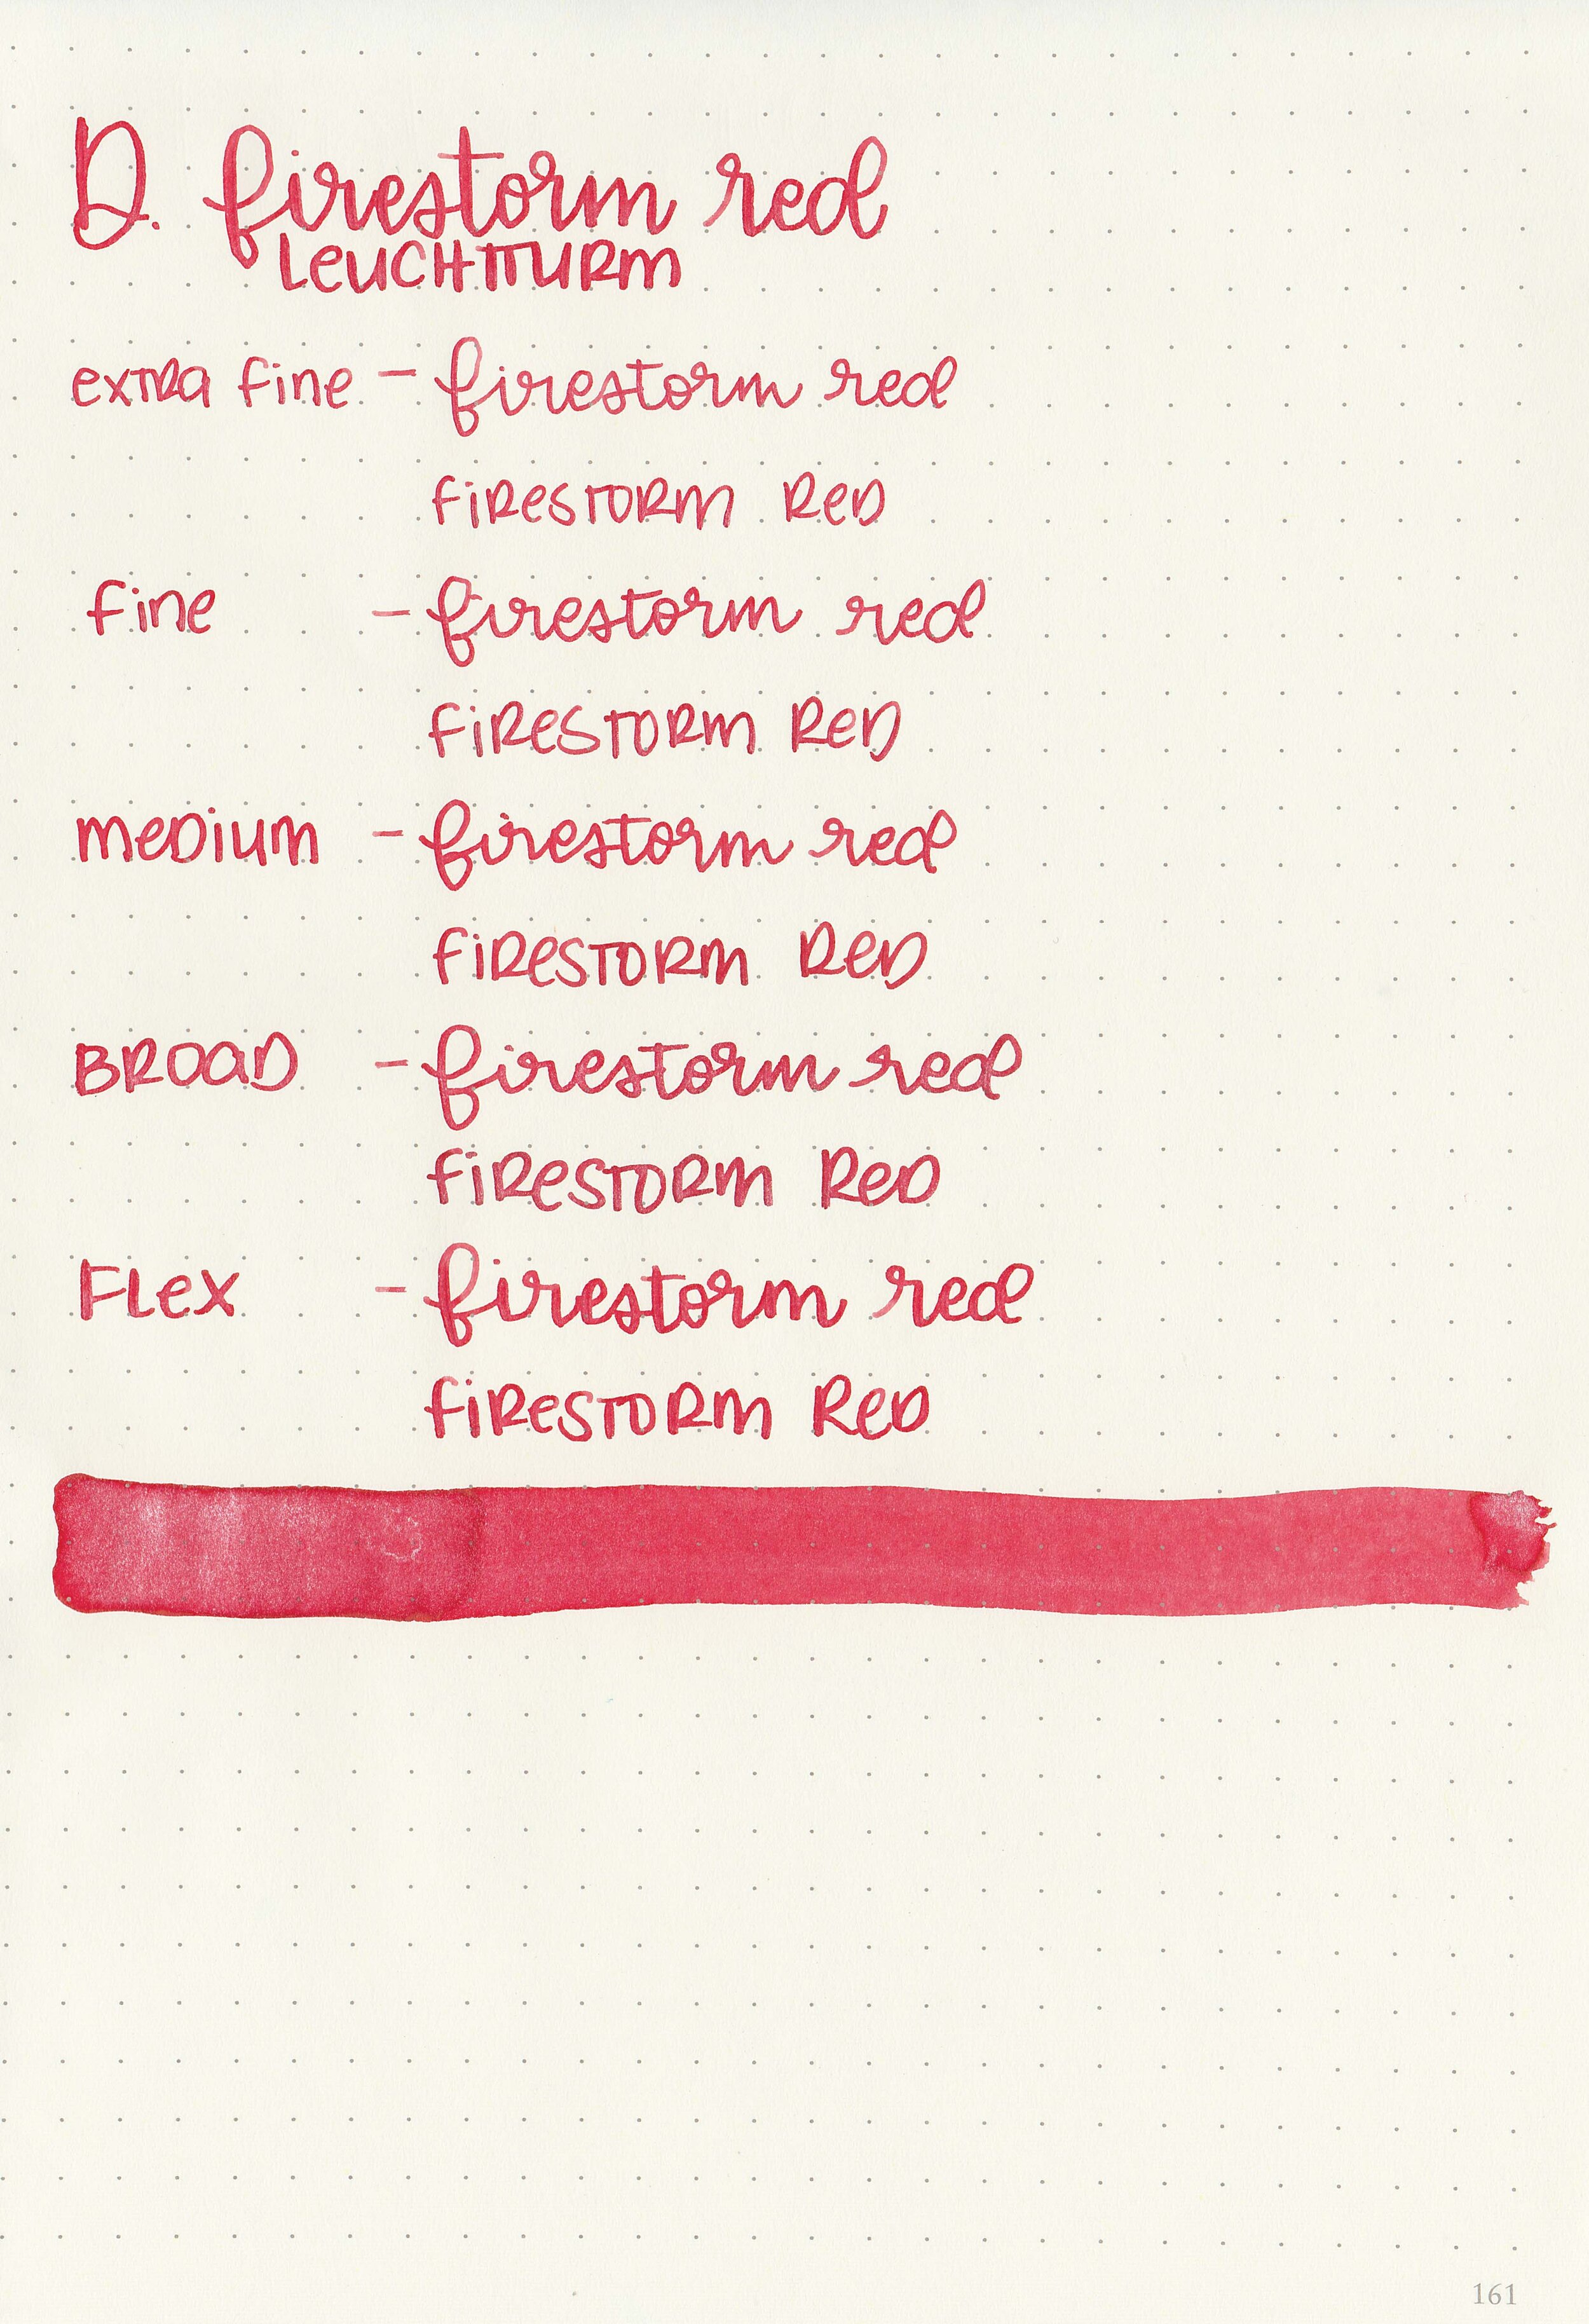 D. firestorm red
LEUCHTTURM
extra fine - firestorm red
FIRESTORM RED
fine - firestorm red
FIRESTORM RED
medium - firestorm red
FIRESTORM RED
BROAD - firestorm red
FIRESTORM RED
FLEX - firestorm red
FIRESTORM RED
161